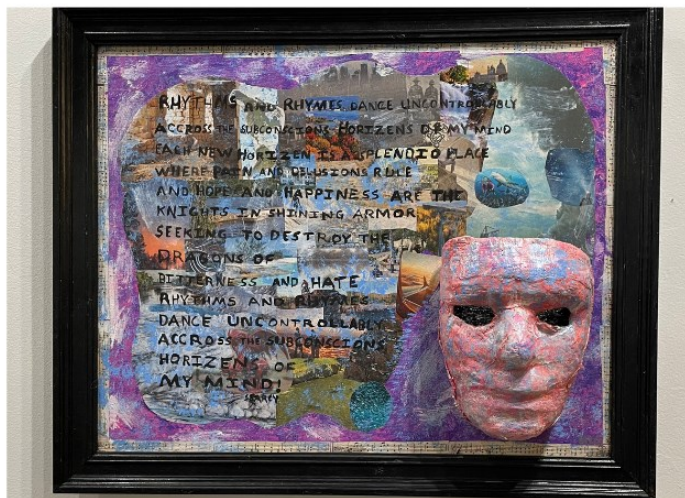 RHYTHMS AND RHYMES DANCE UNCONTROLLABLY
ACCROSS THE SUBCONSCIONS HORIZENS OF MY MIND
EACH NEW HORIZEN IS A SPLENDID PLACE
WHERE PAIN AND DELUSIONS RULE
AND HOPE AND HAPPINESS ARE THE
KNIGHTS IN SHINNING ARMOR
SEEKING TO DESTROY THE
DRAGONS OF
BITTERNESS AND HATE
RHYTHMS AND RHYMES
DANCE UNCONTROLLABLY
ACCROSS THE SUBCONSCIONS
HORIZENS OF
MY MIND!